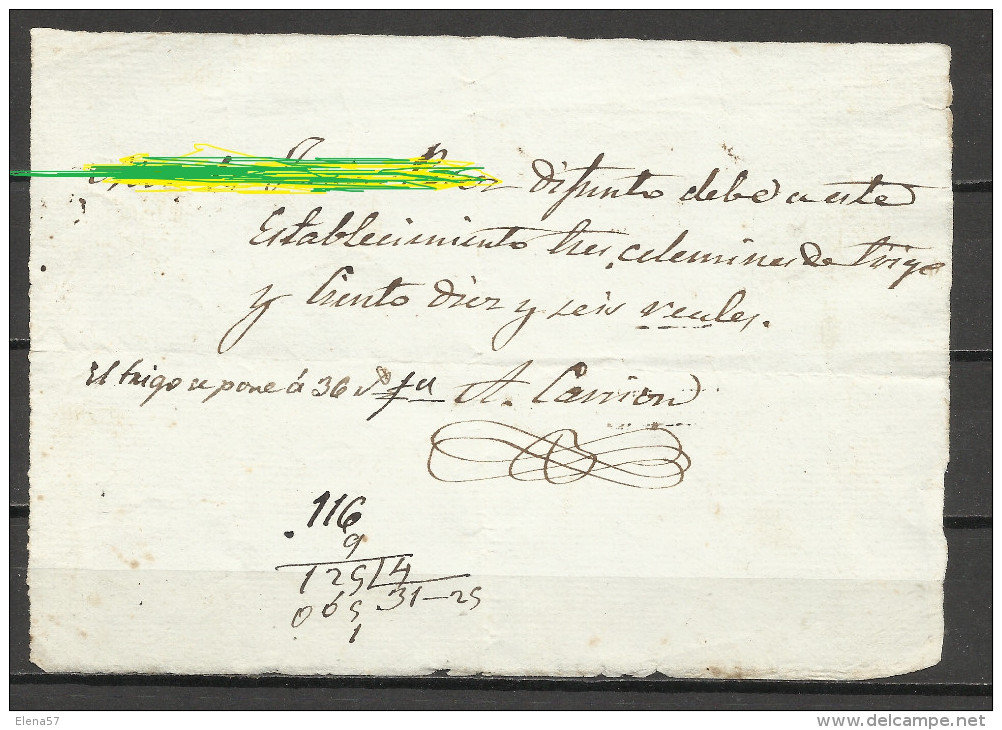 difunto debe a este
Establecimiento tres celemines de trigo
y Ciento diez y seis reales.
El trigo se pone á 36 rs
A. Carrion
116
9
125 4
065 31-25
1
Elena57
www.delcampe.net